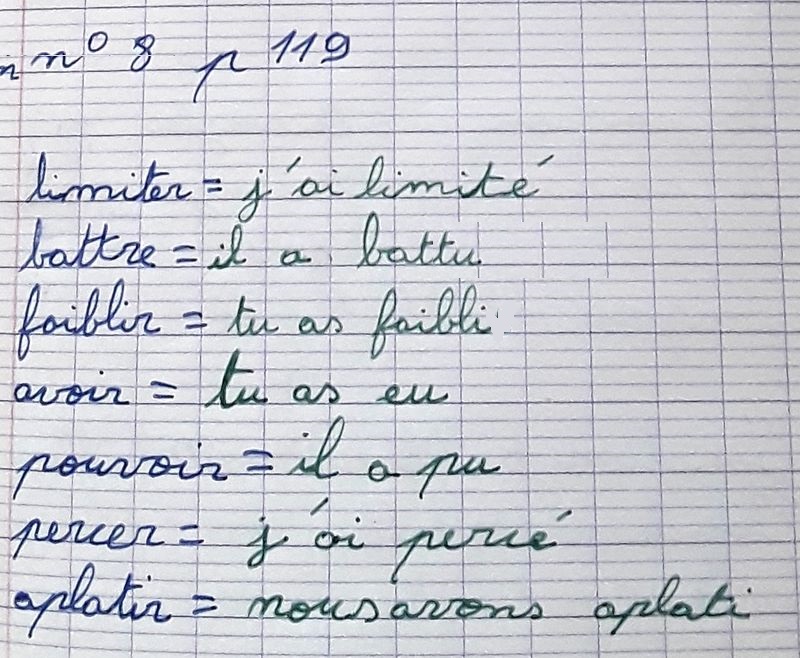 n n° 8 p 119
limiter = j'ai limité
battre = il a battu
faiblir = tu as faibli
avoir = tu as eu
pouvoir = il a pu
percer = j'ai percé
aplatir = nous avons aplati